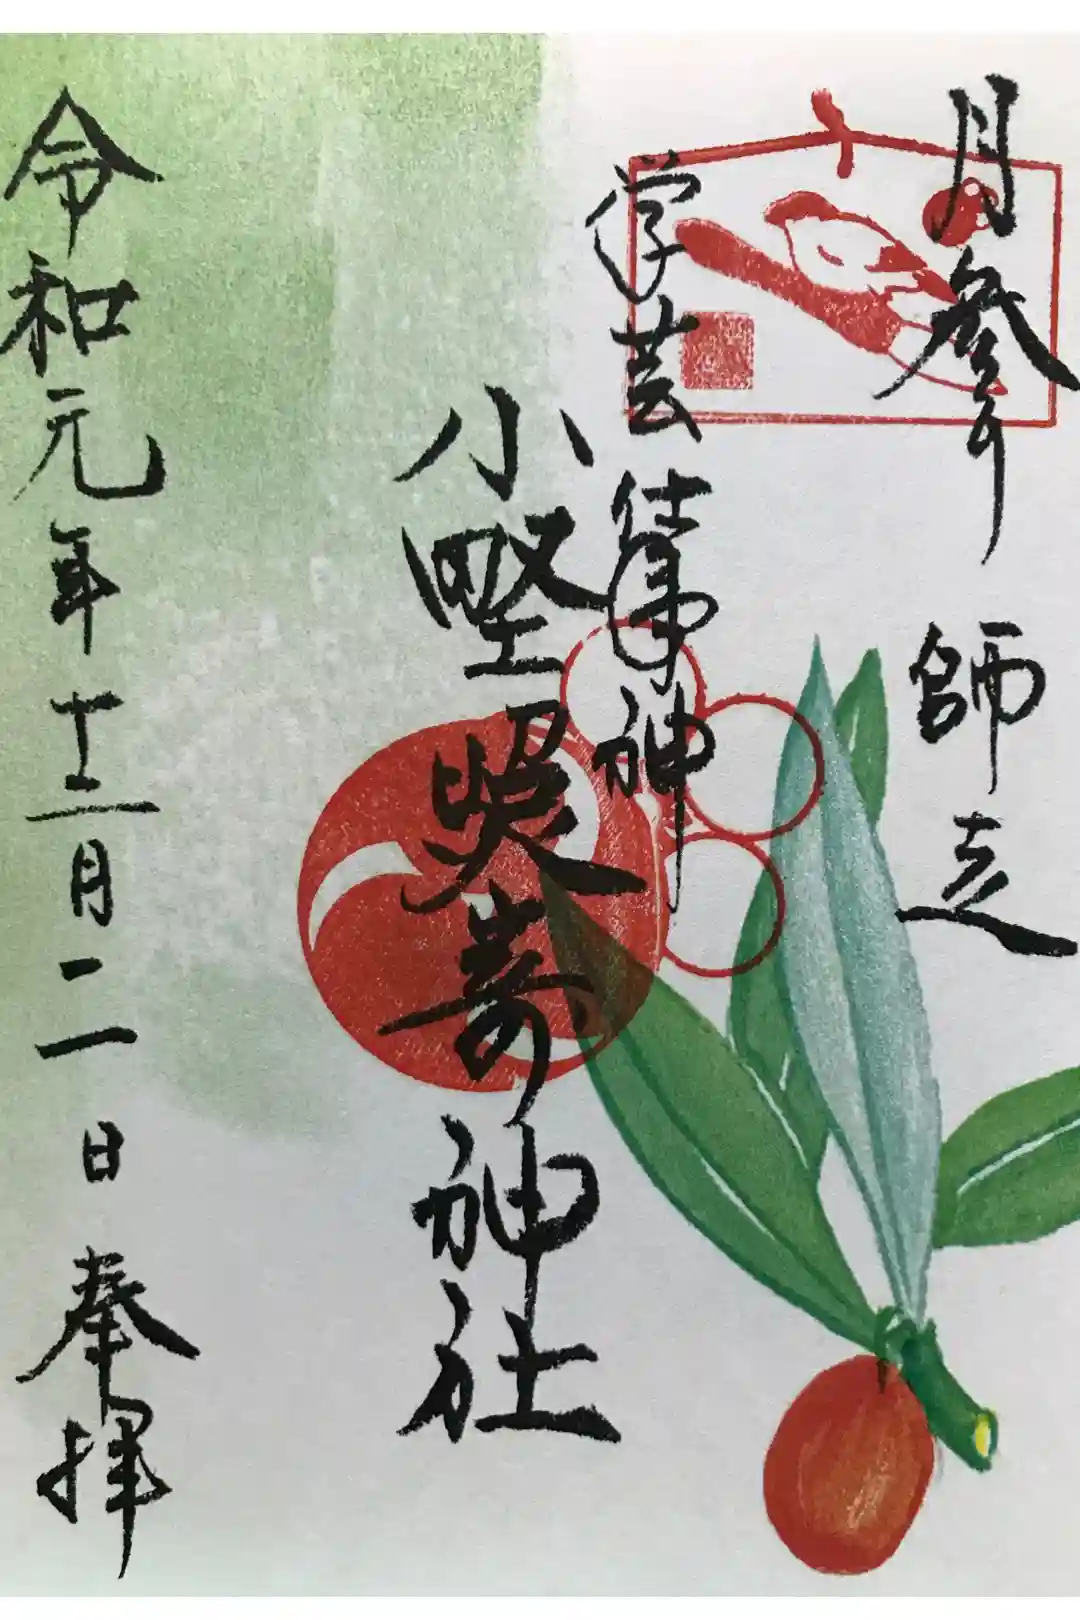 月参り 師走
学芸 神
小野照嵜神社
令和元年十二月二日奉拝